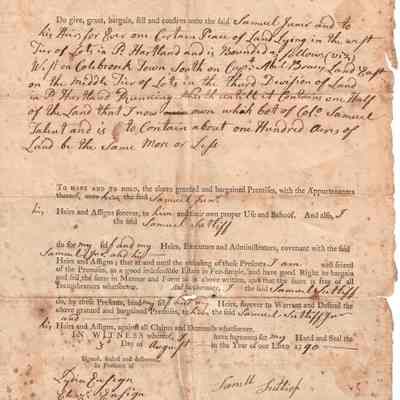 Do give, grant, bargain, sell and confirm unto the said Samuel Junr and to
his Heirs for Ever one Certain Piece of Land Lying in the west
Tier of Lots in Sd Hartland and is Bounded as follows (viz)
West on Colebrook Town South on Capt Land East
on the Middle Tier of Lots in the Third Division of Land
in Sd Hartland Running North untill it Contains one Half
of the Land that I now own which I bot of Colo Samuel
Talcut and is to Contain about one Hundred Acres of
Land be the Same More or Less
TO HAVE AND TO HOLD, the above granted and bargained Premises, with the Appurtenances
thereof, unto him, the said Samuel Junr
his Heirs and Assigns forever, to him and their own proper Use and Behoof. And also, I
the said Samuel Sutliff
do for my self and my Heirs, Executors and Administrators, covenant with the said
Samuel Junr and his
Heirs and Assigns; that at and until the ensealing of these Presents I am well seized
of the Premises, as a good indefeasible Estate in Fee-simple, and have good Right to bargain
and sell the same in Manner and Form as is above written, and that the same is free of all
Incumbrances whatsoever. And furthermore, I the said Samuel Sutliff
do, by these Presents, bind my self and my Heirs, forever to Warrant and Defend the
above granted and bargained Premises, to him the said Samuel Sutliff Junr
and
his Heirs and Assigns, against all Claims and Demands whatsoever.
IN WITNESS whereof, I have hereunto set my Hand and Seal the
3 Day of August in the Year of our LORD 1790
Signed, sealed and delivered,
In Presence of
Lydia Ensign
Ensign
Samll Sutliff